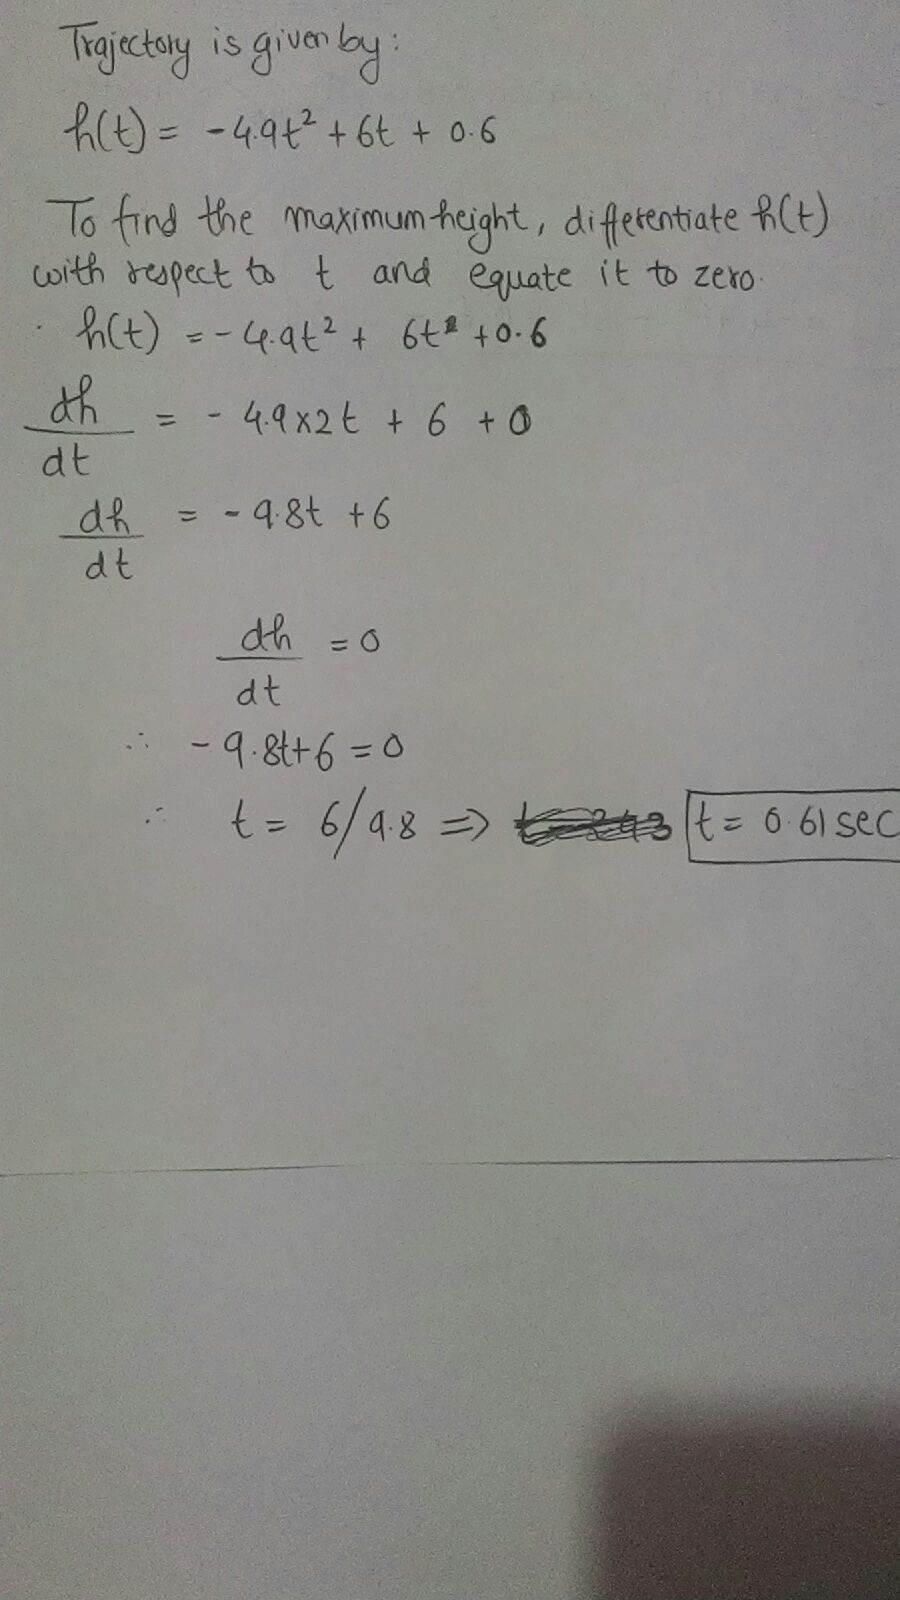 Trajectory is given by:
h(t) = -4.9t² + 6t + 0.6
To find the maximum height, differentiate h(t)
with respect to t and equate it to zero.
h(t) = -4.9t² + 6t + 0.6
dh/dt = -4.9×2t + 6 + 0
dh/dt = -9.8t + 6
dh/dt = 0
∴ -9.8t+6 = 0
∴ t = 6/9.8 => t = 0.61 sec